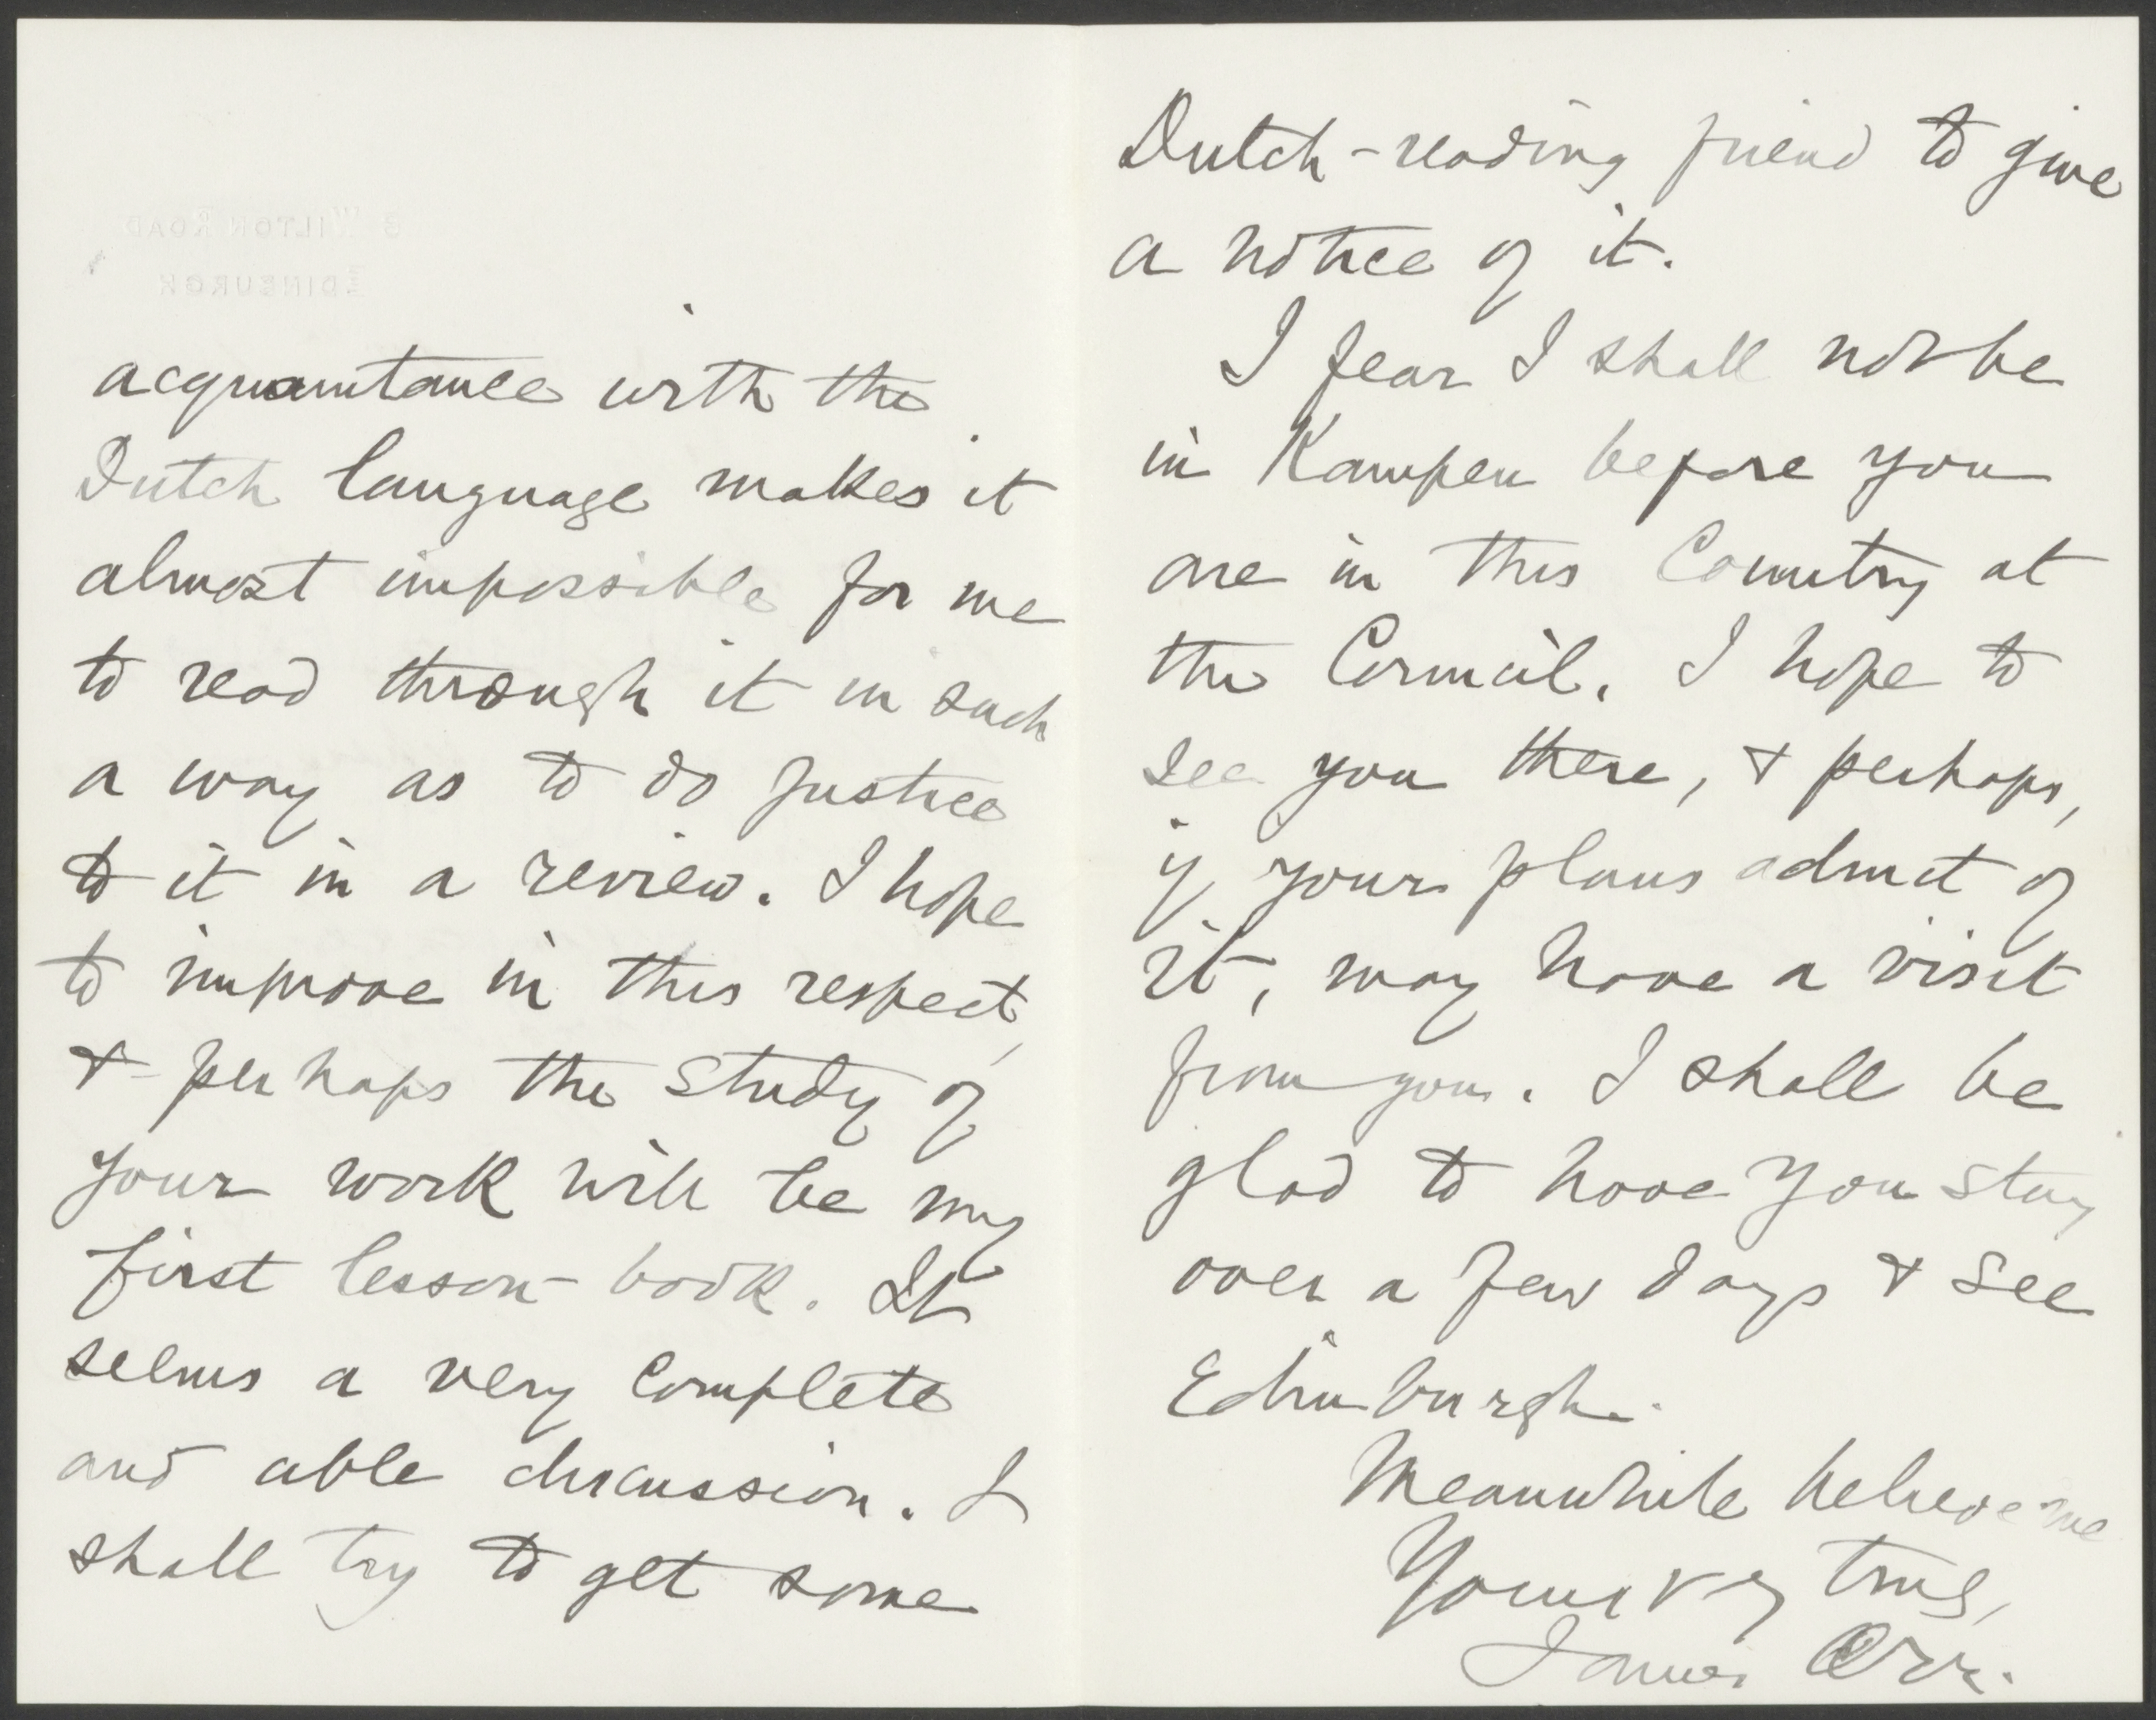 acquaintance with the
Dutch language makes it
almost impossible for me
to read through it in such
a way as to do justice
to it in a review. I hope
to improve in this respect,
& perhaps the study of
your work will be my
first lesson-book. It
seems a very complete
and able discussion. I
shall try to get some
Dutch-reading friend to give
a notice of it.
I fear I shall not be
in Kampen before you
are in this Country at
the Council. I hope to
see you there, & perhaps,
if your plans admit of
it, may have a visit
from you. I shall be
glad to have you stay
over a few days & see
Edinburgh.
Meanwhile believe me
Yours vy truly,
James Orr.
WILTON ROAD
EDINBURGH